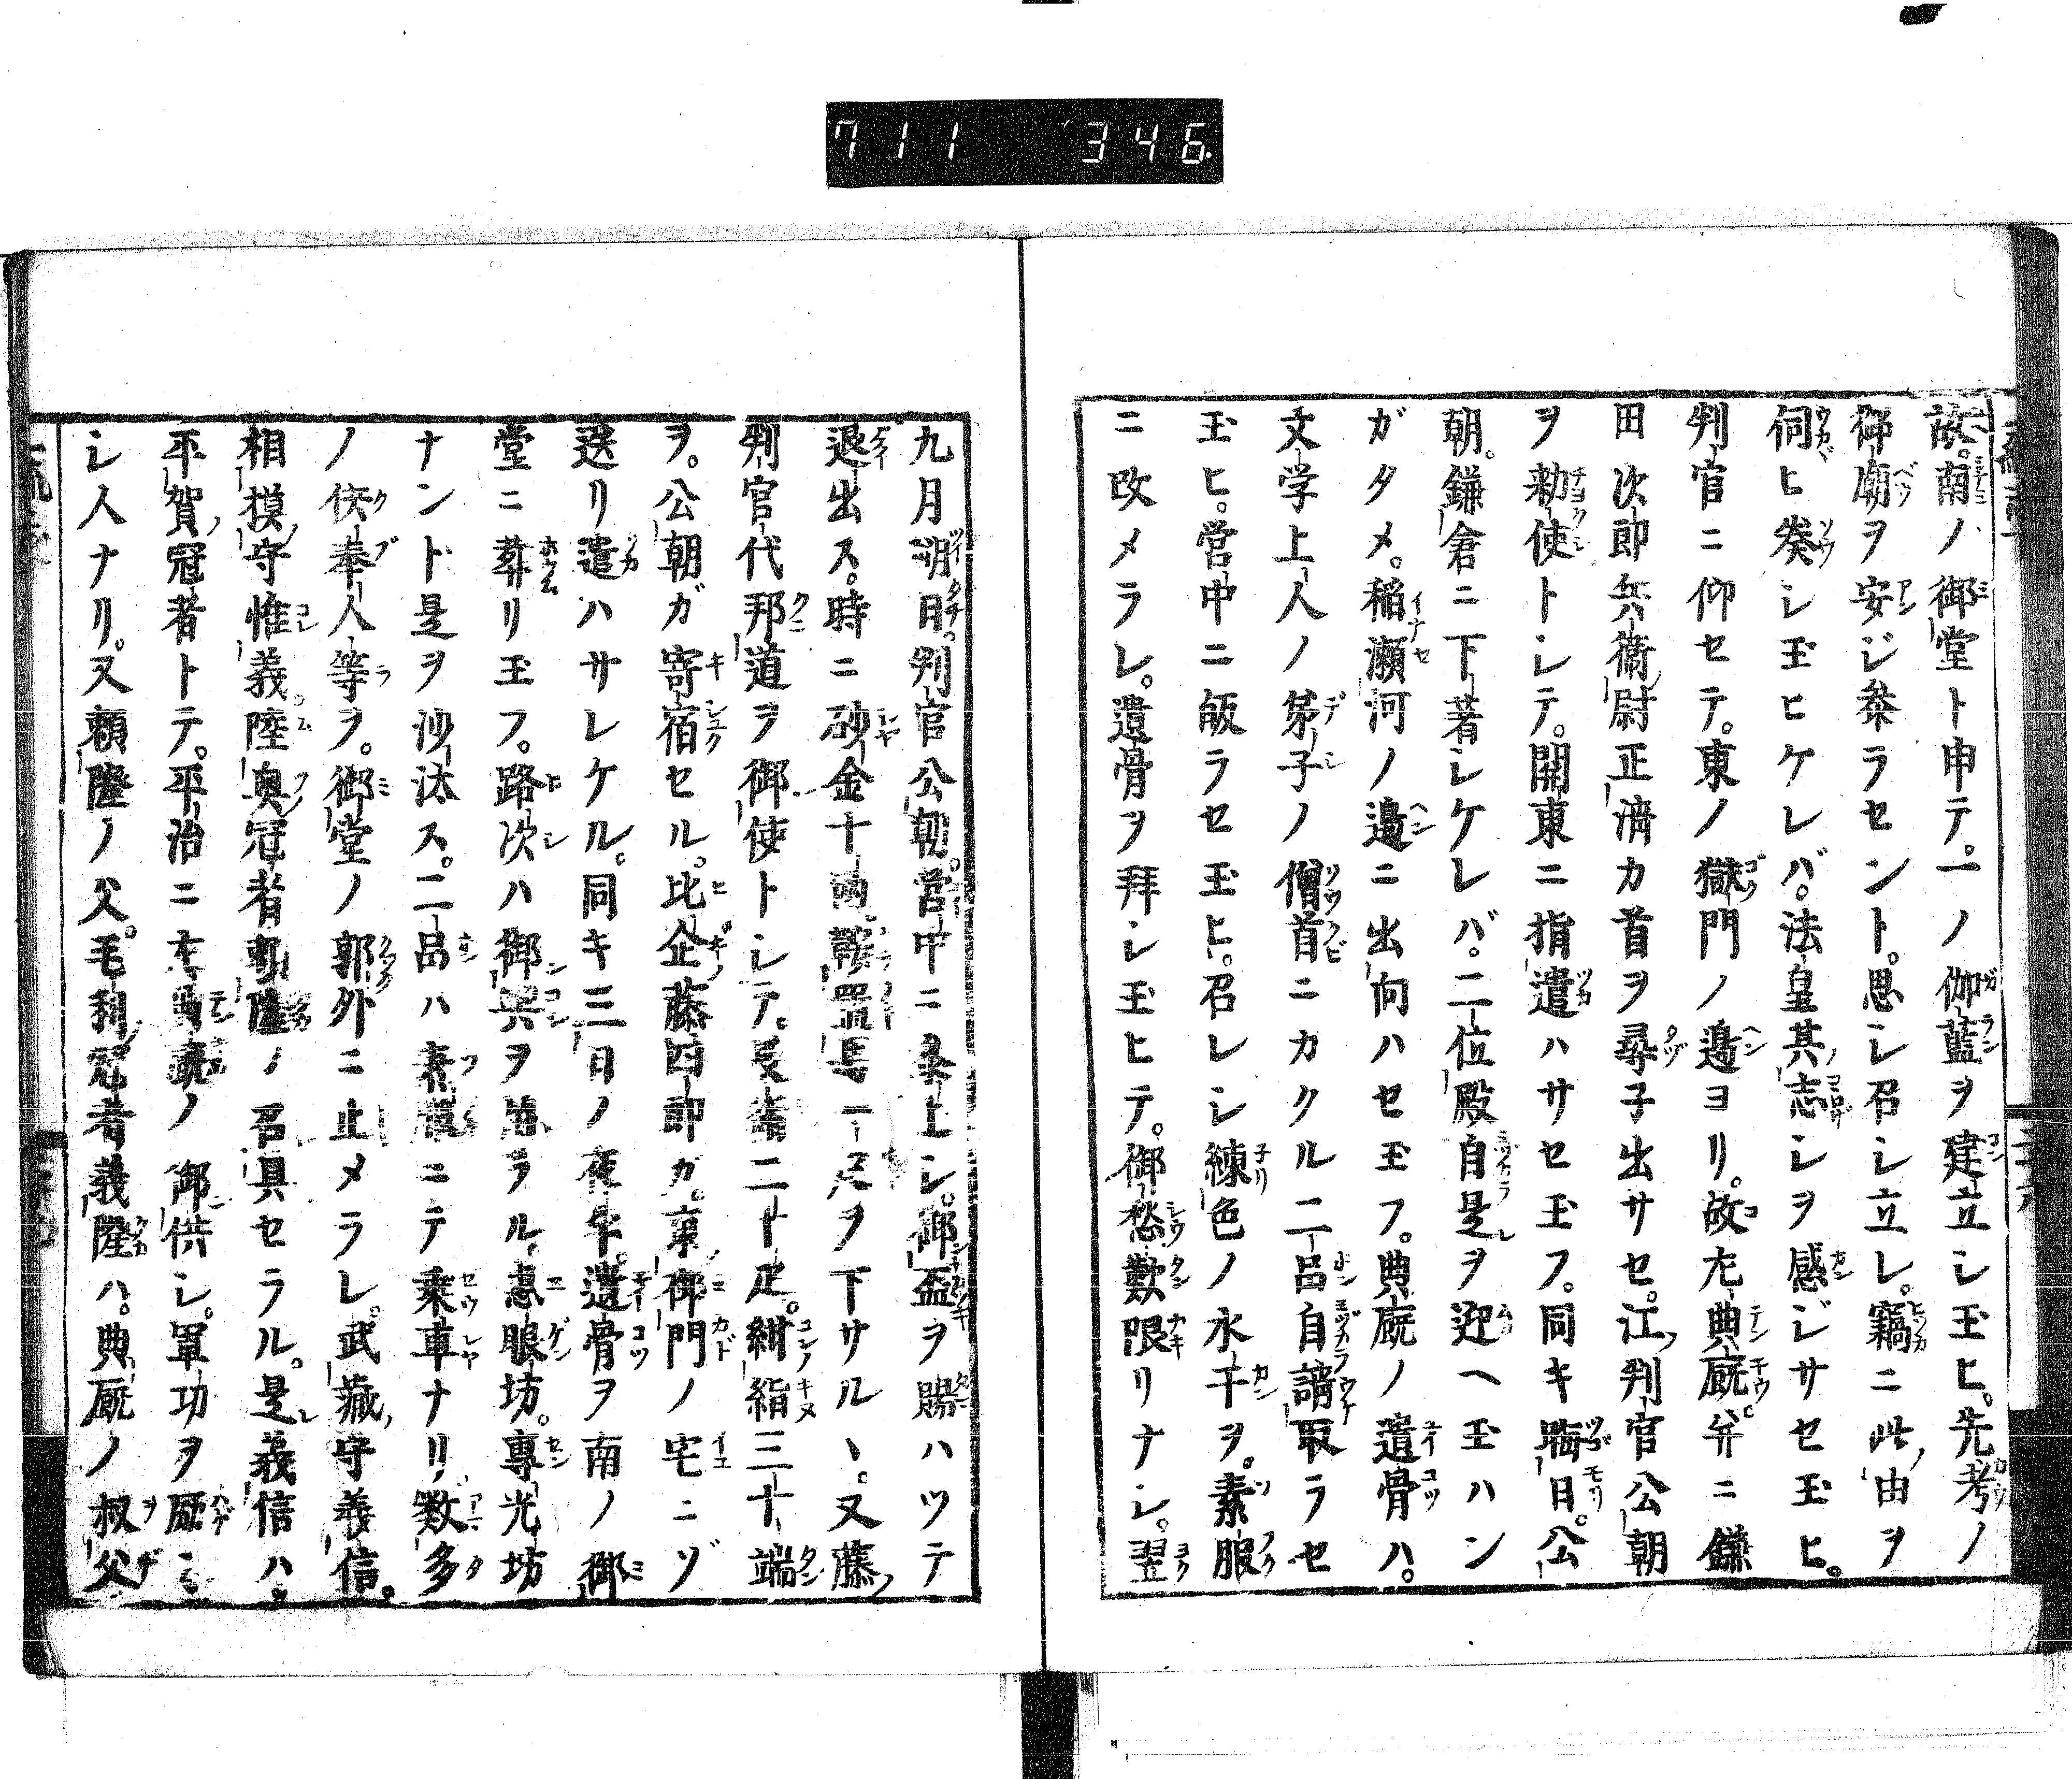 711 346
故。南ノ御堂ト申テ。一ノ伽藍ヲ建立シ玉ヒ。先考ノ
御廟ヲ安ジ奉ラセント。思シ召シ立レ。竊ニ此由ヲ
伺ヒ奏シ玉ヒケレバ。法皇其志シヲ感ジサセ玉ヒ。
判官ニ仰セテ。東ノ獄門ノ邊ヨリ。故左典厩。并ニ鎌
田次郎兵衞尉正清カ首ヲ尋子出サセ。江判官公朝
ヲ勅使トシテ。関東ニ指遣ハサセ玉フ。同キ晦日。公
朝。鎌倉ニ下著シケレバ。二位殿自是ヲ迎ヘ玉ハン
ガタメ。稲瀬河ノ邊ニ出向ハセ玉フ。典厩ノ遺骨ハ。
文学上人ノ弟子ノ僧首ニカクル二品自請取ラセ
玉ヒ。営中ニ皈ラセ玉ヒ。召レシ練色ノ水干ヲ。素服
ニ改メラレ。遺骨ヲ拜シ玉ヒテ。御愁歎限リナシ。翌
九月朔日。判官公朝。営中ニ参上シ。御盃ヲ賜ハツテ
退出ス。時ニ砂金十両鞍置馬一疋ヲ下サル丶。又藤
判官代邦道ヲ御使トシテ。長絹二十疋。紺絹三十端
ヲ。公朝ガ寄宿セル。比企藤四郎ガ。東御門ノ宅ニゾ
送リ遣ハサレケル。同キ三日ノ夜半。遺骨ヲ南ノ御
堂ニ葬リ玉フ。路次ハ御輿ヲ ラル。恵眼坊。專光坊
ナンド是ヲ沙汰ス。二品ハ素服ニテ乗車ナリ。数多
ノ供奉人等ヲ。御堂ノ郭外ニ止メラレ。武藏守義信。
相摸守惟義。陸奥冠者頼隆ノミ召具セラル。是義信ハ。
平賀冠者トテ。平治ニ左典厩ノ御供シ。軍功ヲ励ミ
シ人ナリ。又頼隆ノ父。毛利冠者義隆ハ。典厩ノ叔父